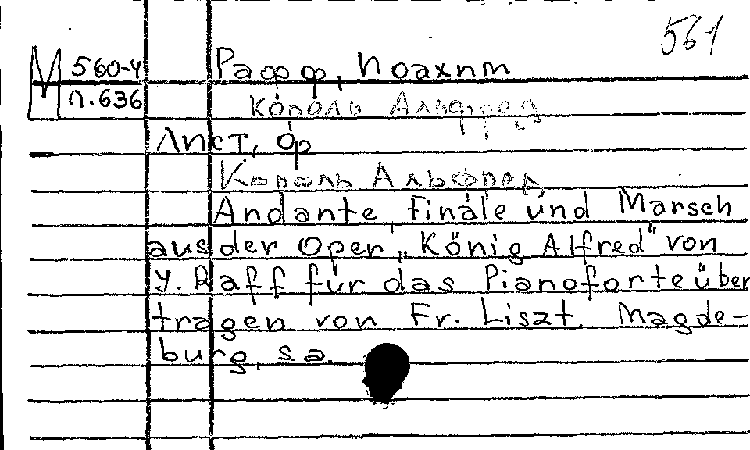 561
М 560-4
п.636
Рафф, Иоахим
Король Альфред
Лист, Ф
Король Альфред
Andante, Finale und Marsch
aus der Oper „König Alfred" von
J. Raff für das Pianoforte über
tragen von Fr. Liszt. Magde-
burg, s a.